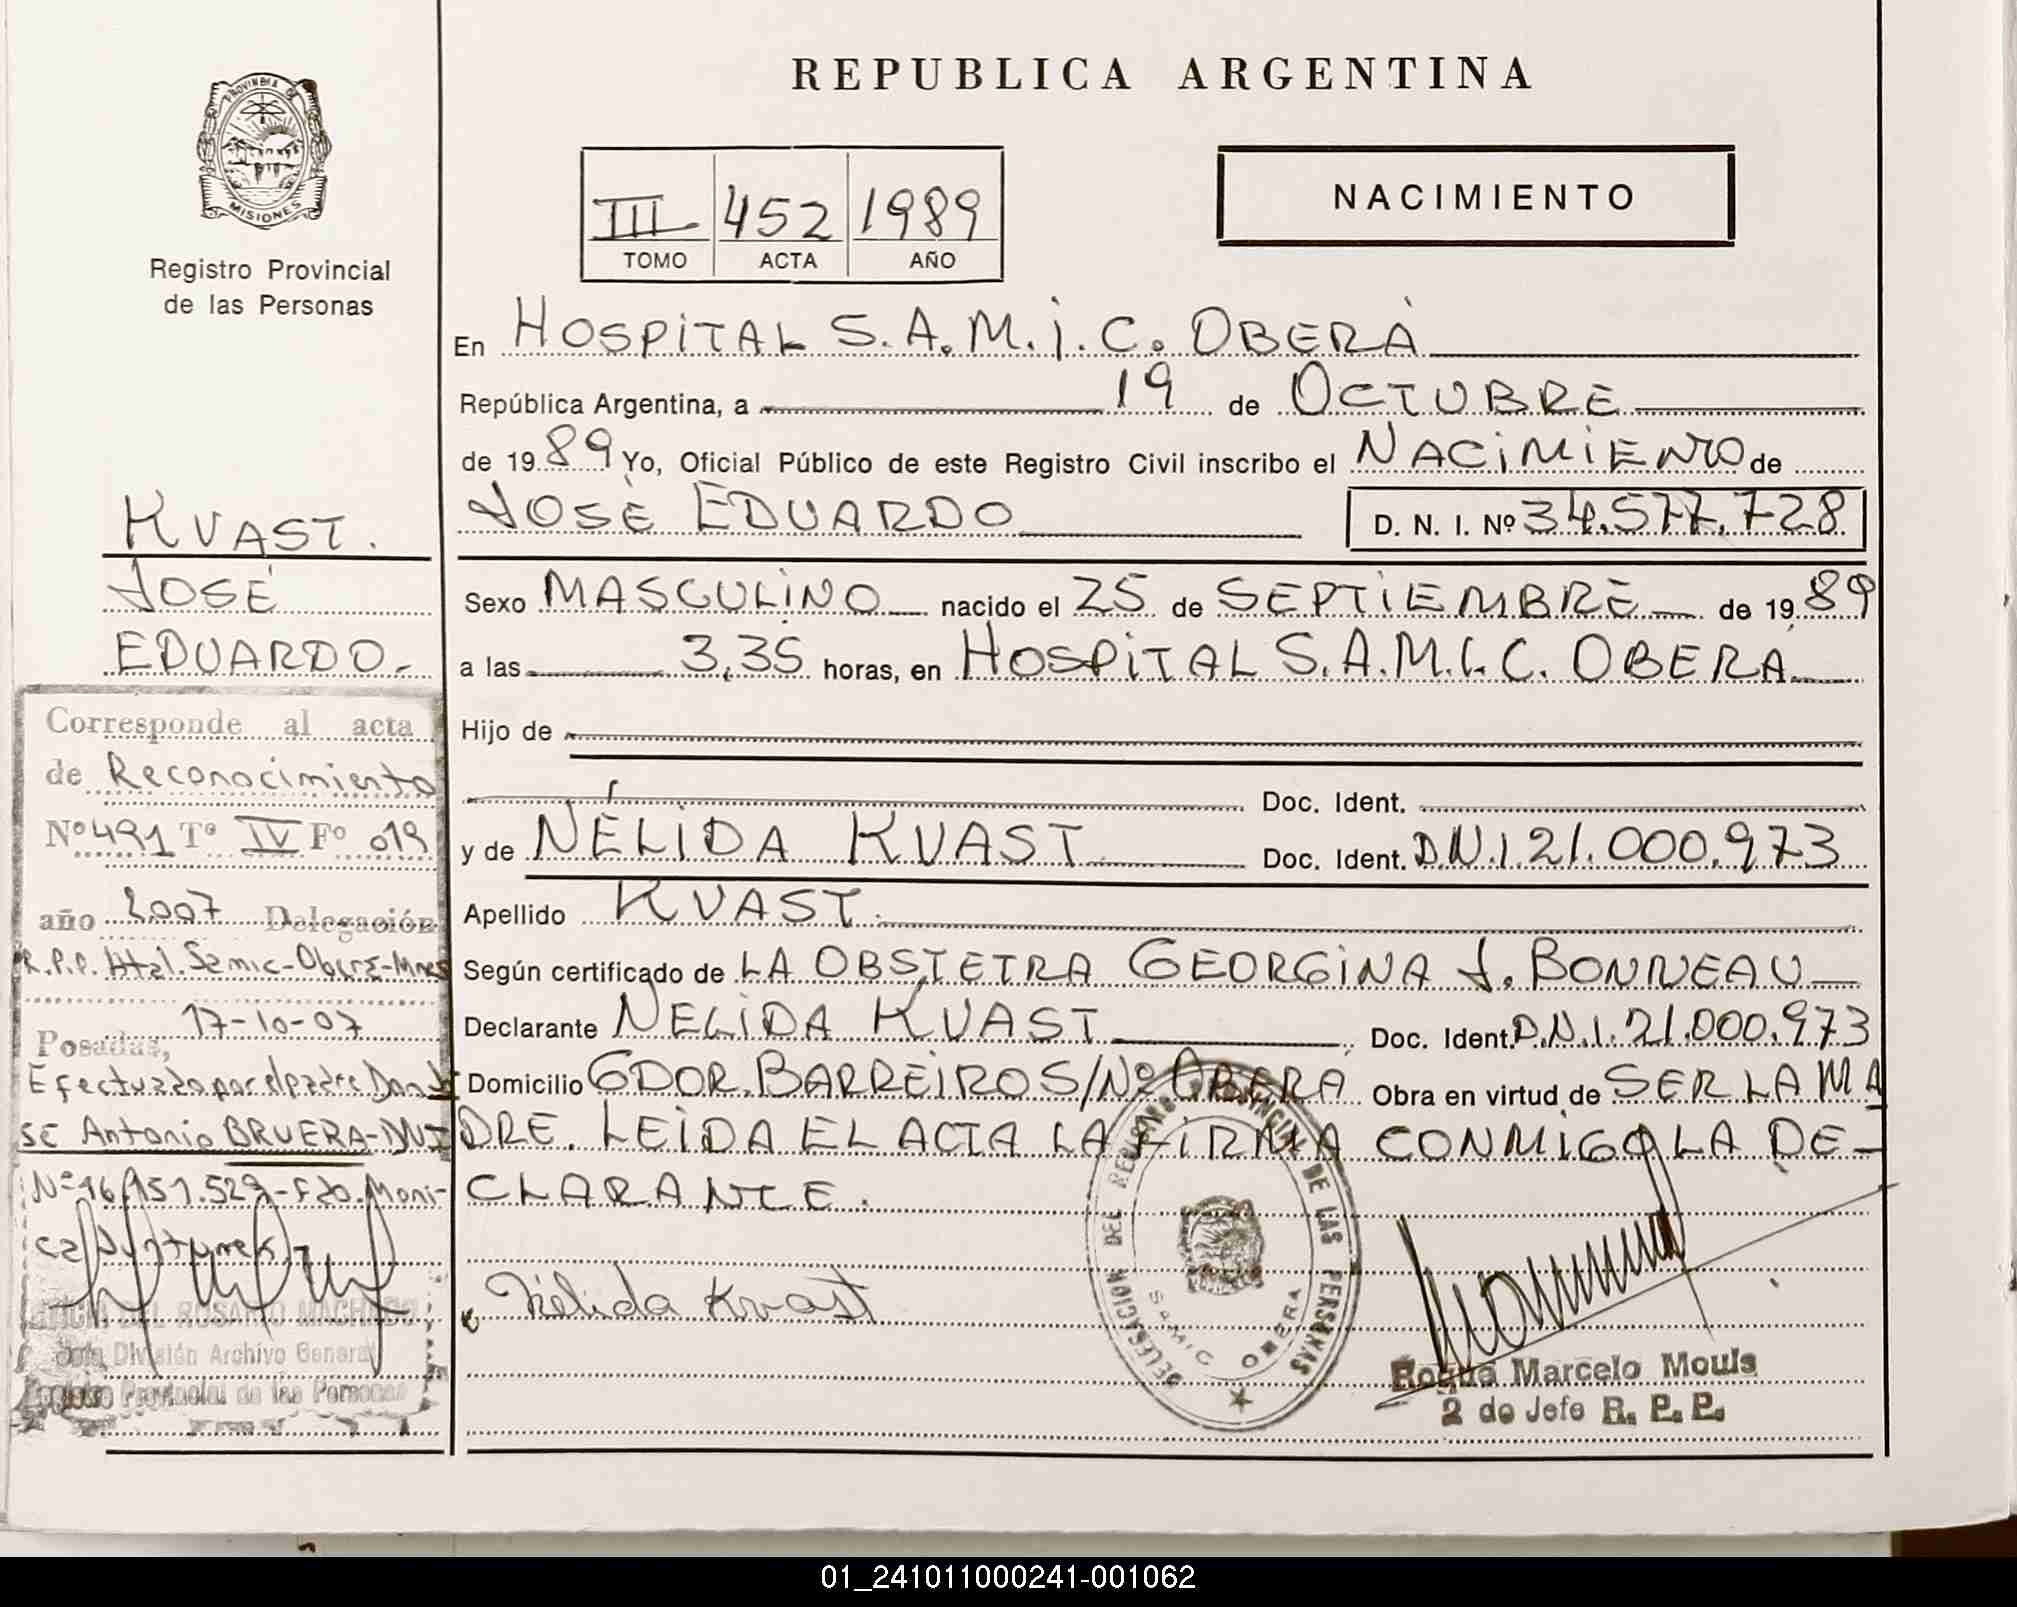 REPUBLICA ARGENTINA
PROVINCIA DE
MISIONES
Registro Provincial
de las Personas
III 452 1989
TOMO ACTA AÑO
NACIMIENTO
En HOSPITAL S.A.M.I.C. OBERÁ
República Argentina, a 19 de OCTUBRE
de 1989 Yo, Oficial Público de este Registro Civil inscribo el NACIMIENTO de
JOSÉ EDUARDO D. N. I. Nº 34.577.728
Sexo MASCULINO nacido el 25 de SEPTIEMBRE de 1989
a las 3,35 horas, en HOSPITAL S.A.M.I.C. OBERÁ
Hijo de
Doc. Ident.
y de NÉLIDA KVAST Doc. Ident. D.N.I. 21.000.973
Apellido KVAST.
Según certificado de LA OBSTETRA GEORGINA J. BONNEAU
Declarante NÉLIDA KVAST Doc. Ident. D.N.I. 21.000.973
Domicilio GDOR. BARREIRO S/Nº OBERÁ Obra en virtud de SER LA MA
DRE. LEIDA EL ACTA LA FIRMA CONMIGO LA DE-
CLARANTE.
Nélida Kvast
DELEGACION DEL REGISTRO PROVINCIAL DE LAS PERSONAS
SAMIC OBERA
Roque Marcelo Mouls
2 do Jefe R. P. P.
KVAST.
JOSÉ
EDUARDO.-
Corresponde al acta
de Reconocimiento
Nº 491 Tº IV Fº 019
año 2007 Delegación
R.P.P. Htal. Samic-Oberá-Mnes
17-10-07
Posadas,
Efectuada por el padre Don Jo
sé Antonio BRUERA-DNI
Nº 16.151.529-Fdo. Moni-
ca
DEL ROSARIO MACHADO
División Archivo General
Registro Provincial de las Personas
01_241011000241-001062